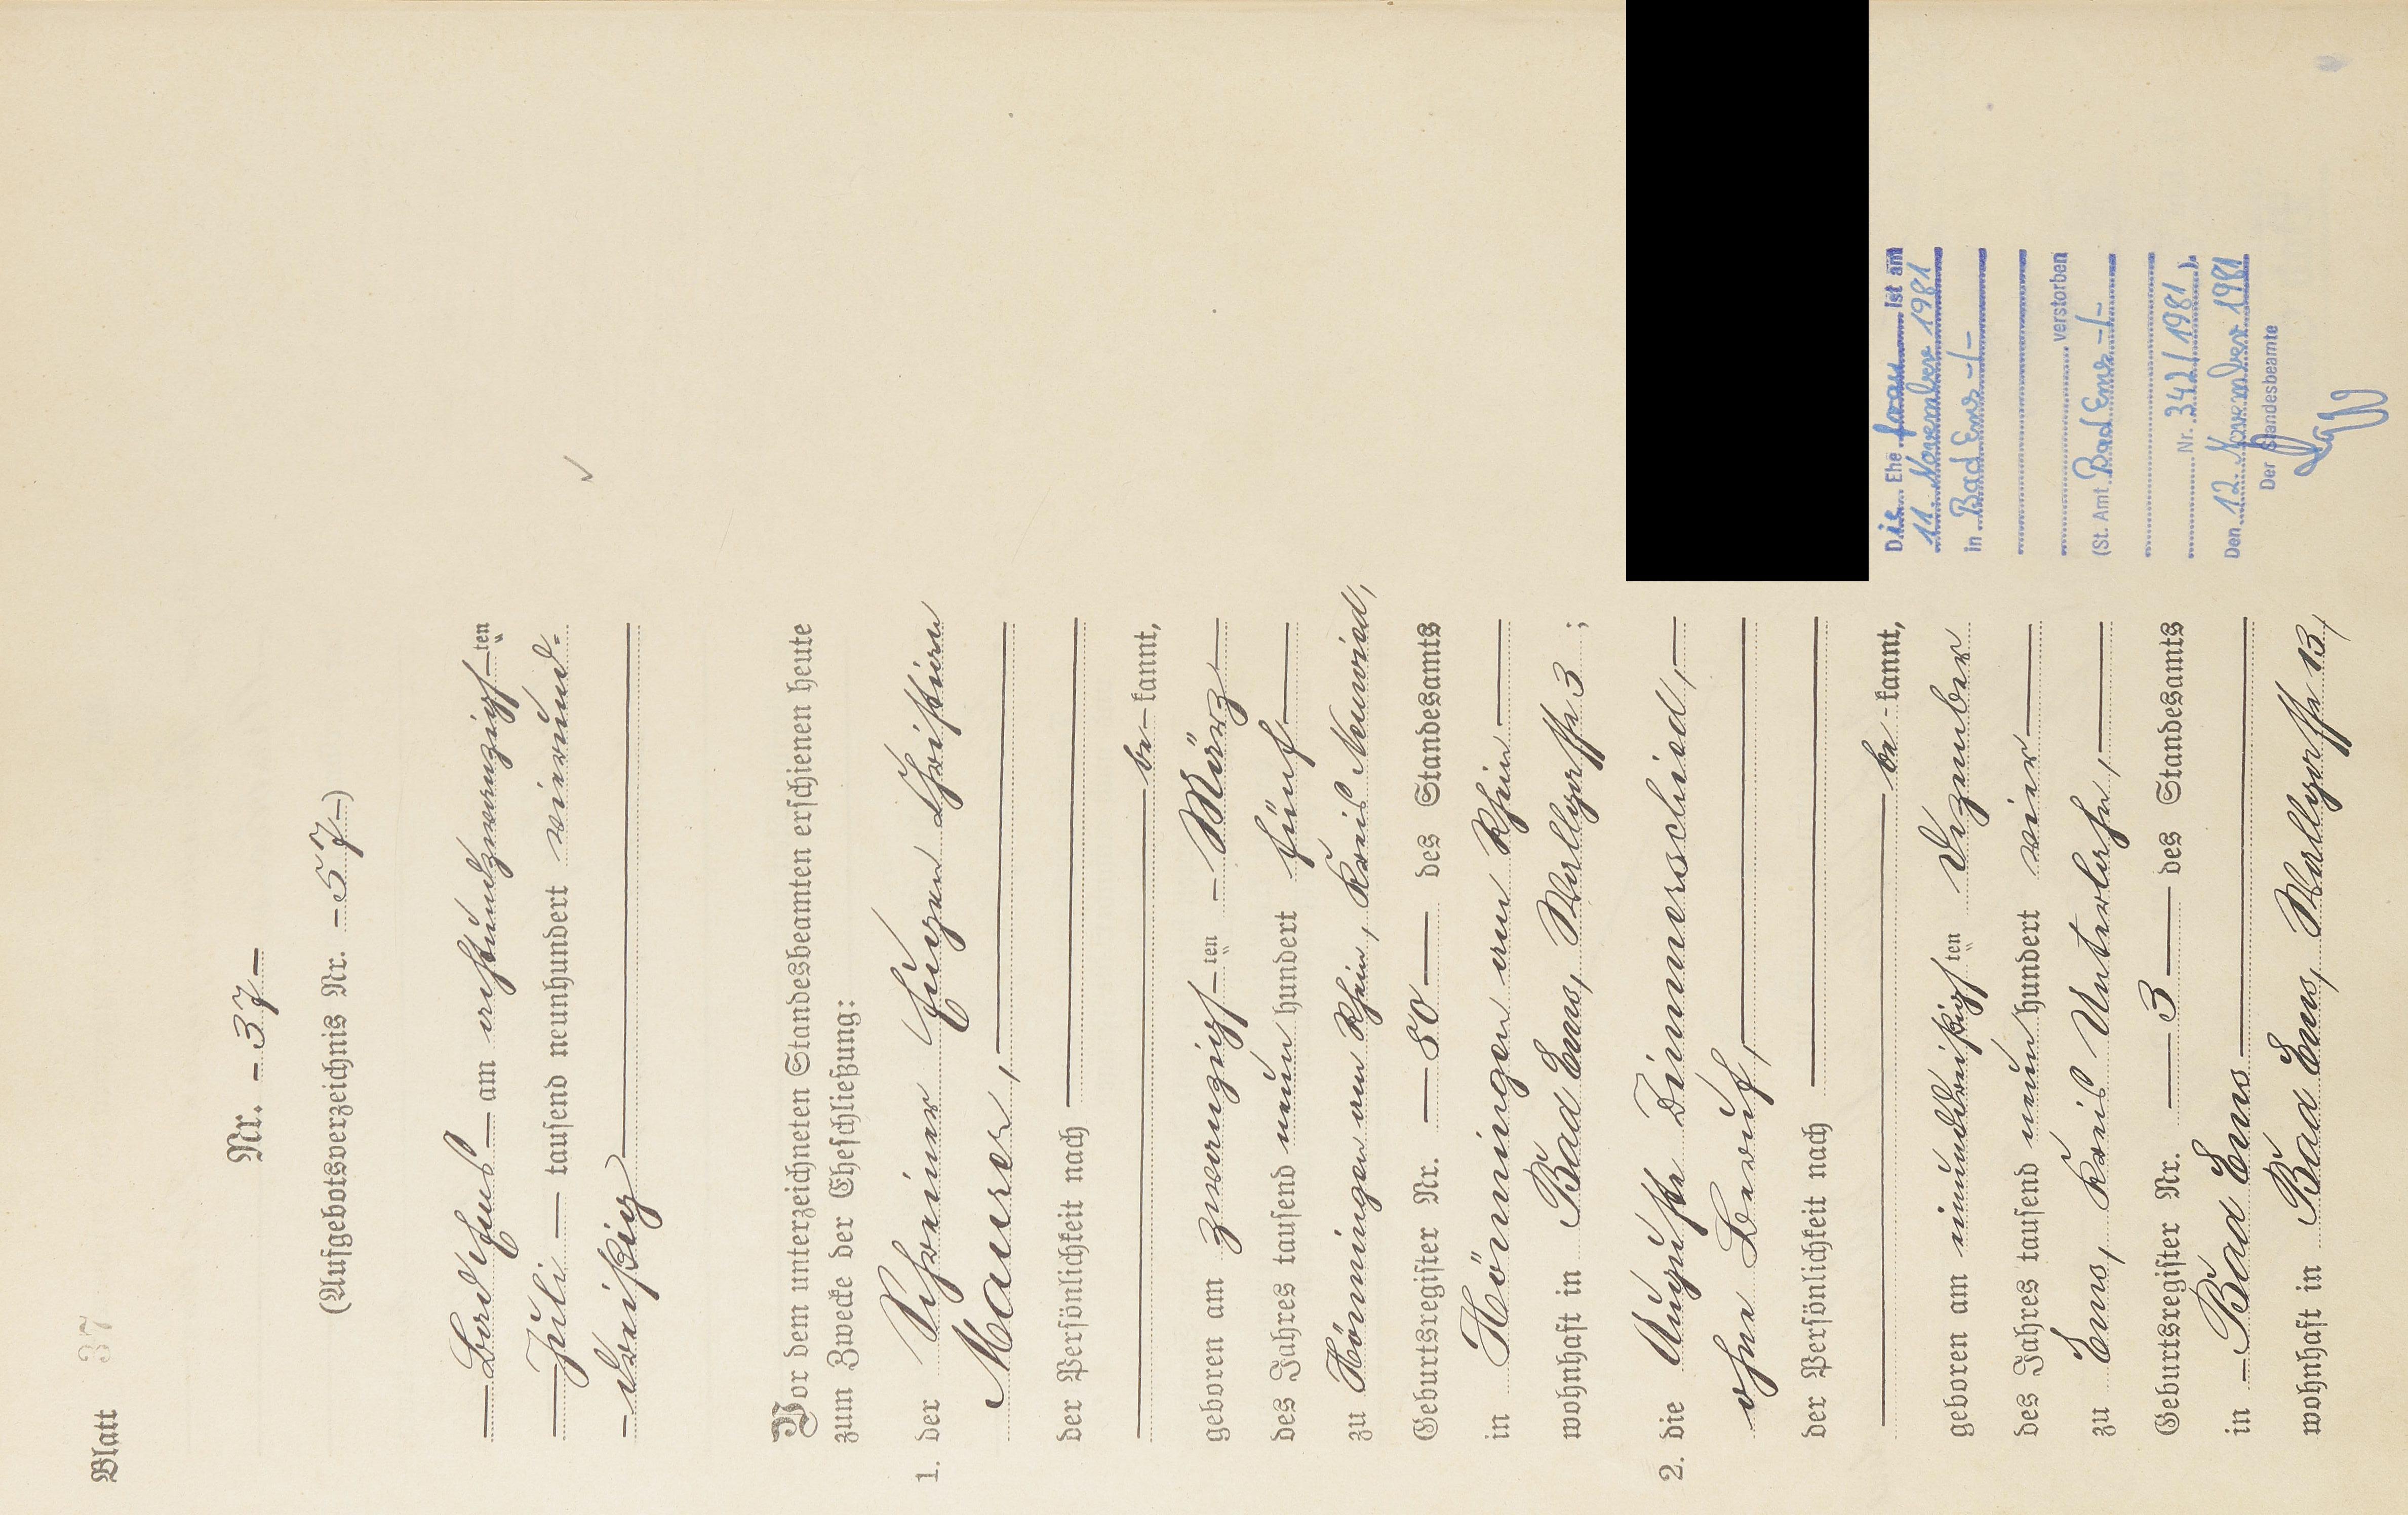 Blatt 37
Nr. – 37 –
(Aufgebotsverzeichnis Nr. – 57 –)
— Bad Ems — am achtundzwanzigs – ten
— Juli — tausend neunhundert vierund-
– dreißig —
Vor dem unterzeichneten Standesbeamten erschienen heute
zum Zwecke der Eheschließung:
1. der Schreiner Eugen Christian
Mauser, —
der Persönlichkeit nach —
— be – kannt,
geboren am zwanzigs – ten – März —
des Jahres tausend neun hundert fünf —
zu Hönningen am Rhein, Kreis Neuwied,
Geburtsregister Nr. — 50 — des Standesamts
in Hönningen am Rhein —
wohnhaft in Bad Ems, Wallgasse 3 ;
2. die Auguste Dimmerschied, —
ohne Beruf, —
der Persönlichkeit nach —
— be - kannt,
geboren am einunddreißigs ten Dezember
des Jahres tausend neun hundert vier —
zu Ems, Kreis Unterlahn, —
Geburtsregister Nr. — 3 — des Standesamts
in – Bad Ems —
wohnhaft in Bad Ems, Wallgasse 13,
Die Ehefrau ist am
11. November 1981
in Bad Ems -/-
verstorben
(St. Amt Bad Ems -/-
Nr. 342/1981).
Den 12. November 1981
Der Standesbeamte